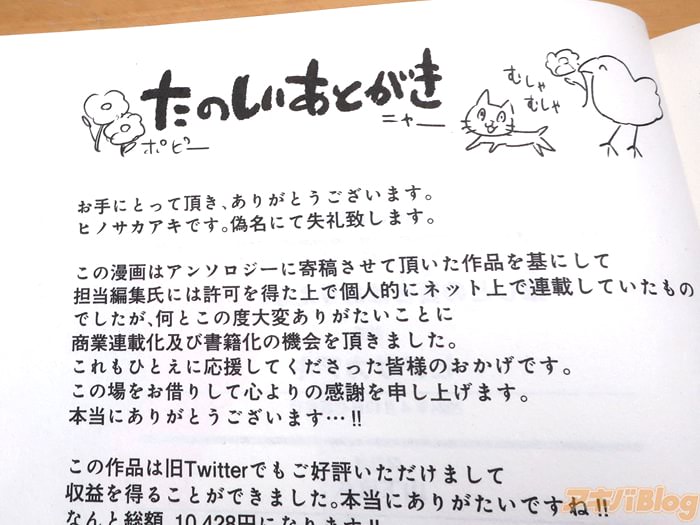 たのしいあとがき
ポピー
ニャー
むしゃ
むしゃ
お手にとって頂き、ありがとうございます。
ヒノサカアキです。偽名にて失礼致します。
この漫画はアンソロジーに寄稿させて頂いた作品を基にして
担当編集氏には許可を得た上で個人的にネット上で連載していたもの
でしたが、何とこの度大変ありがたいことに
商業連載化及び書籍化の機会を頂きました。
これもひとえに応援してくださった皆様のおかげです。
この場をお借りして心よりの感謝を申し上げます。
本当にありがとうございます…!!
この作品は旧Twitterでもご好評いただけまして
収益を得ることができました。本当にありがたいですね!!
なんと総額、10,428円になります!!
アキバBlog